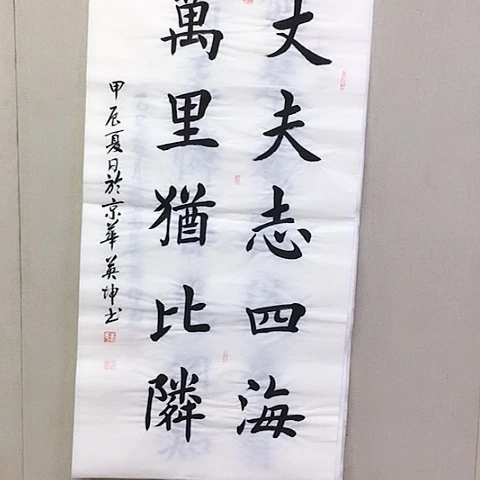 丈夫志四海
萬里猶比隣
甲辰夏日於京華英坤书